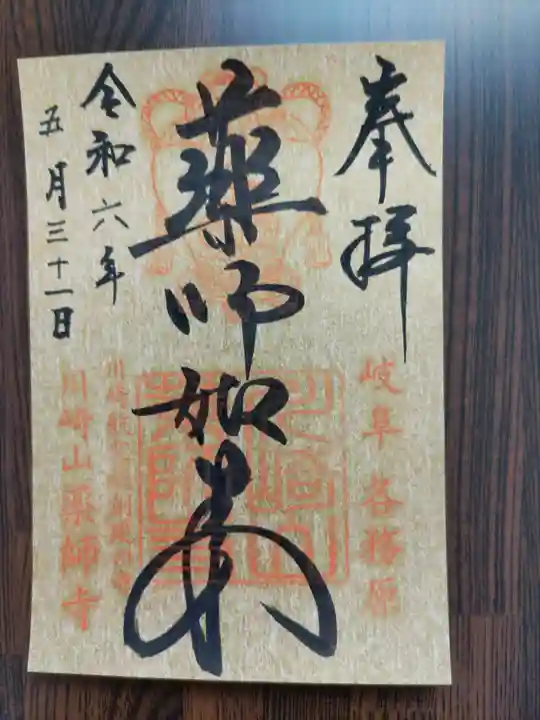 奉拝
岐阜 各務原
薬師如来
令和六年
五月三十一日
川崎山薬師寺